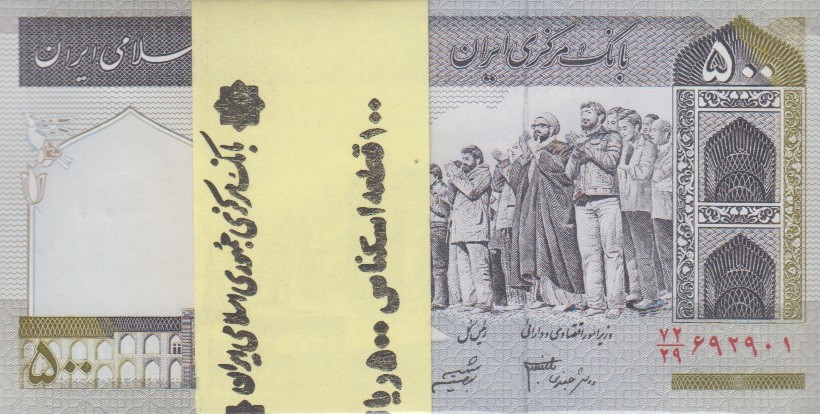 بانک مرکزی ایران
لامی ایران
۵۰۰
بانک مرکزی جمهوری اسلامی ایران
۱۰۰ قطعه اسکناس ۵۰۰ ریا
وزیر امور اقتصادی و دارائی
رئیس کل
۷۲/۲۹ ۶۹۲۹۰۱
۵۰۰